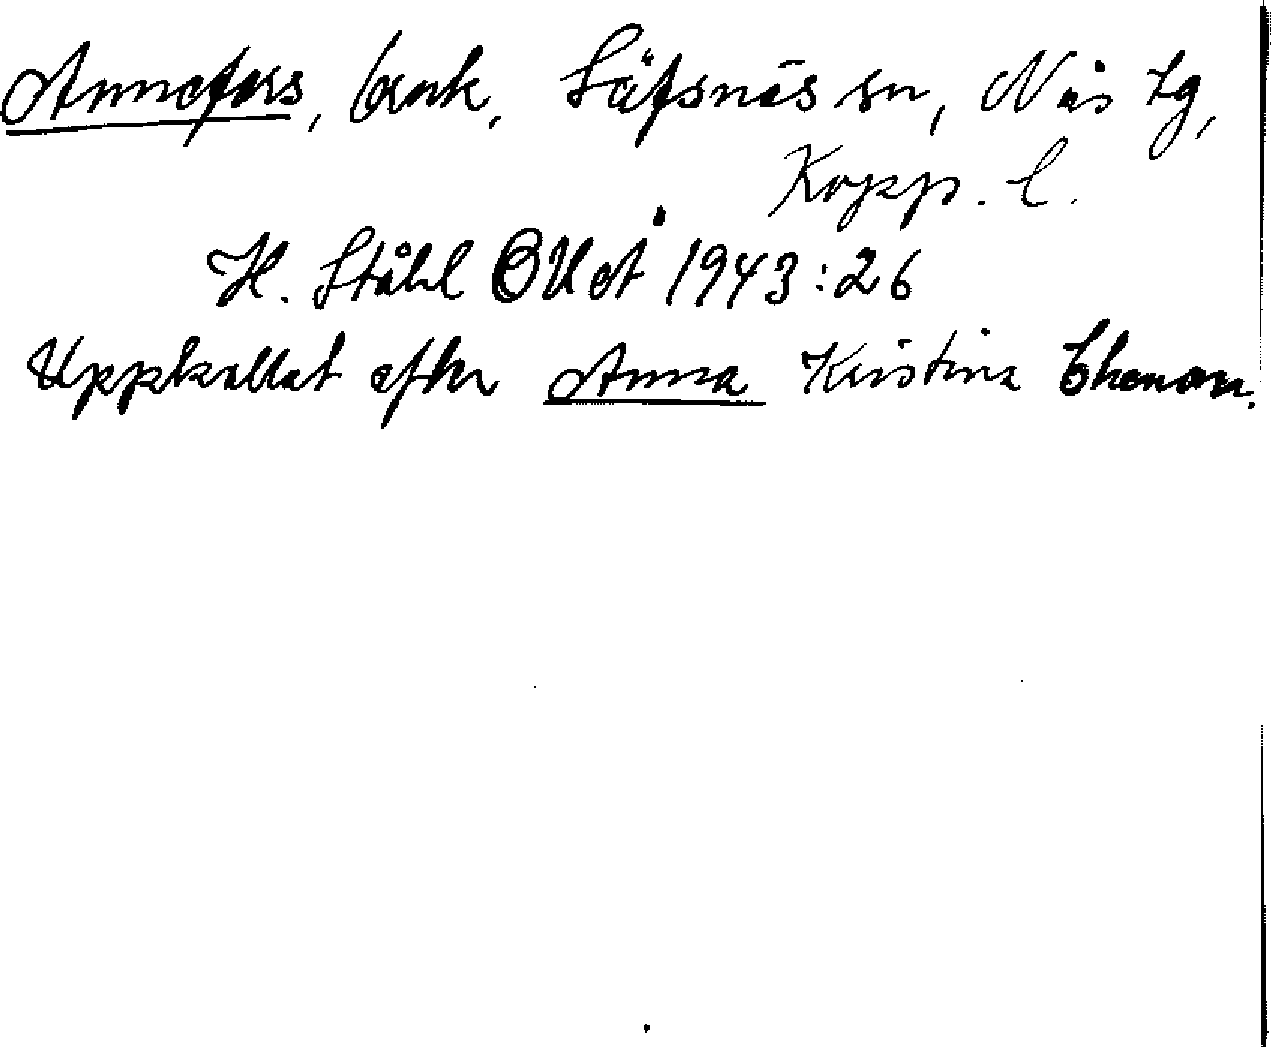 Annefors, bruk, Säfsnäs sn, Näs tg,
Kopp. l.
H. Ståhl OUÅ 1943:26
Uppkallat efter Anna Kristina Ekman.